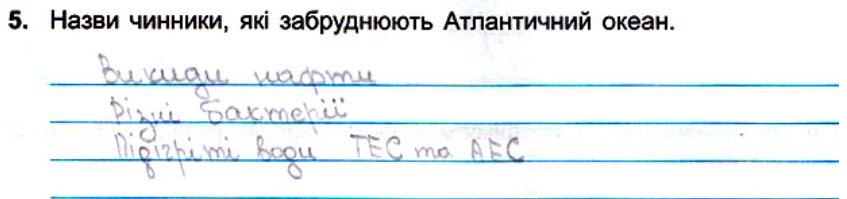 5. Назви чинники, які забруднюють Атлантичний океан.
Викиди нафти
Різні бактерії
Підігріті води ТЕС та АЕС